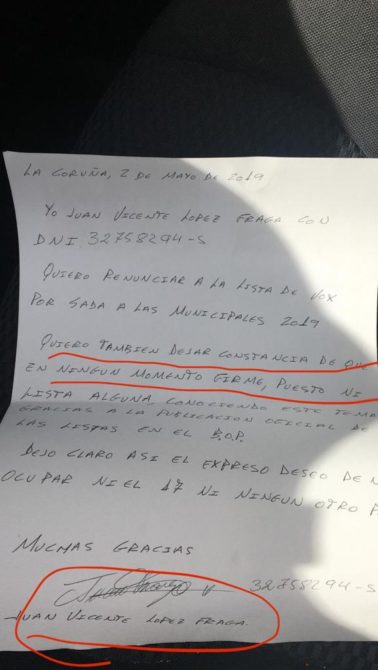 LA CORUÑA, 2 DE MAYO DE 2019
YO JUAN VICENTE LOPEZ FRAGA CON
DNI 32758294-S
QUIERO RENUNCIAR A LA LISTA DE VOX
POR SADA A LAS MUNICIPALES 2019
QUIERO TAMBIEN DEJAR CONSTANCIA DE QUE
EN NINGUN MOMENTO FIRME, PUESTO NI
LISTA ALGUNA CONOCIENDO ESTE TEMA
GRACIAS A LA PUBLICACION OFICIAL DE
LAS LISTAS EN EL B.O.P.
DEJO CLARO ASI EL EXPRESO DESEO DE N
OCUPAR NI EL 17 NI NINGUN OTRO P
MUCHAS GRACIAS
32758294-S
JUAN VICENTE LOPEZ FRAGA.